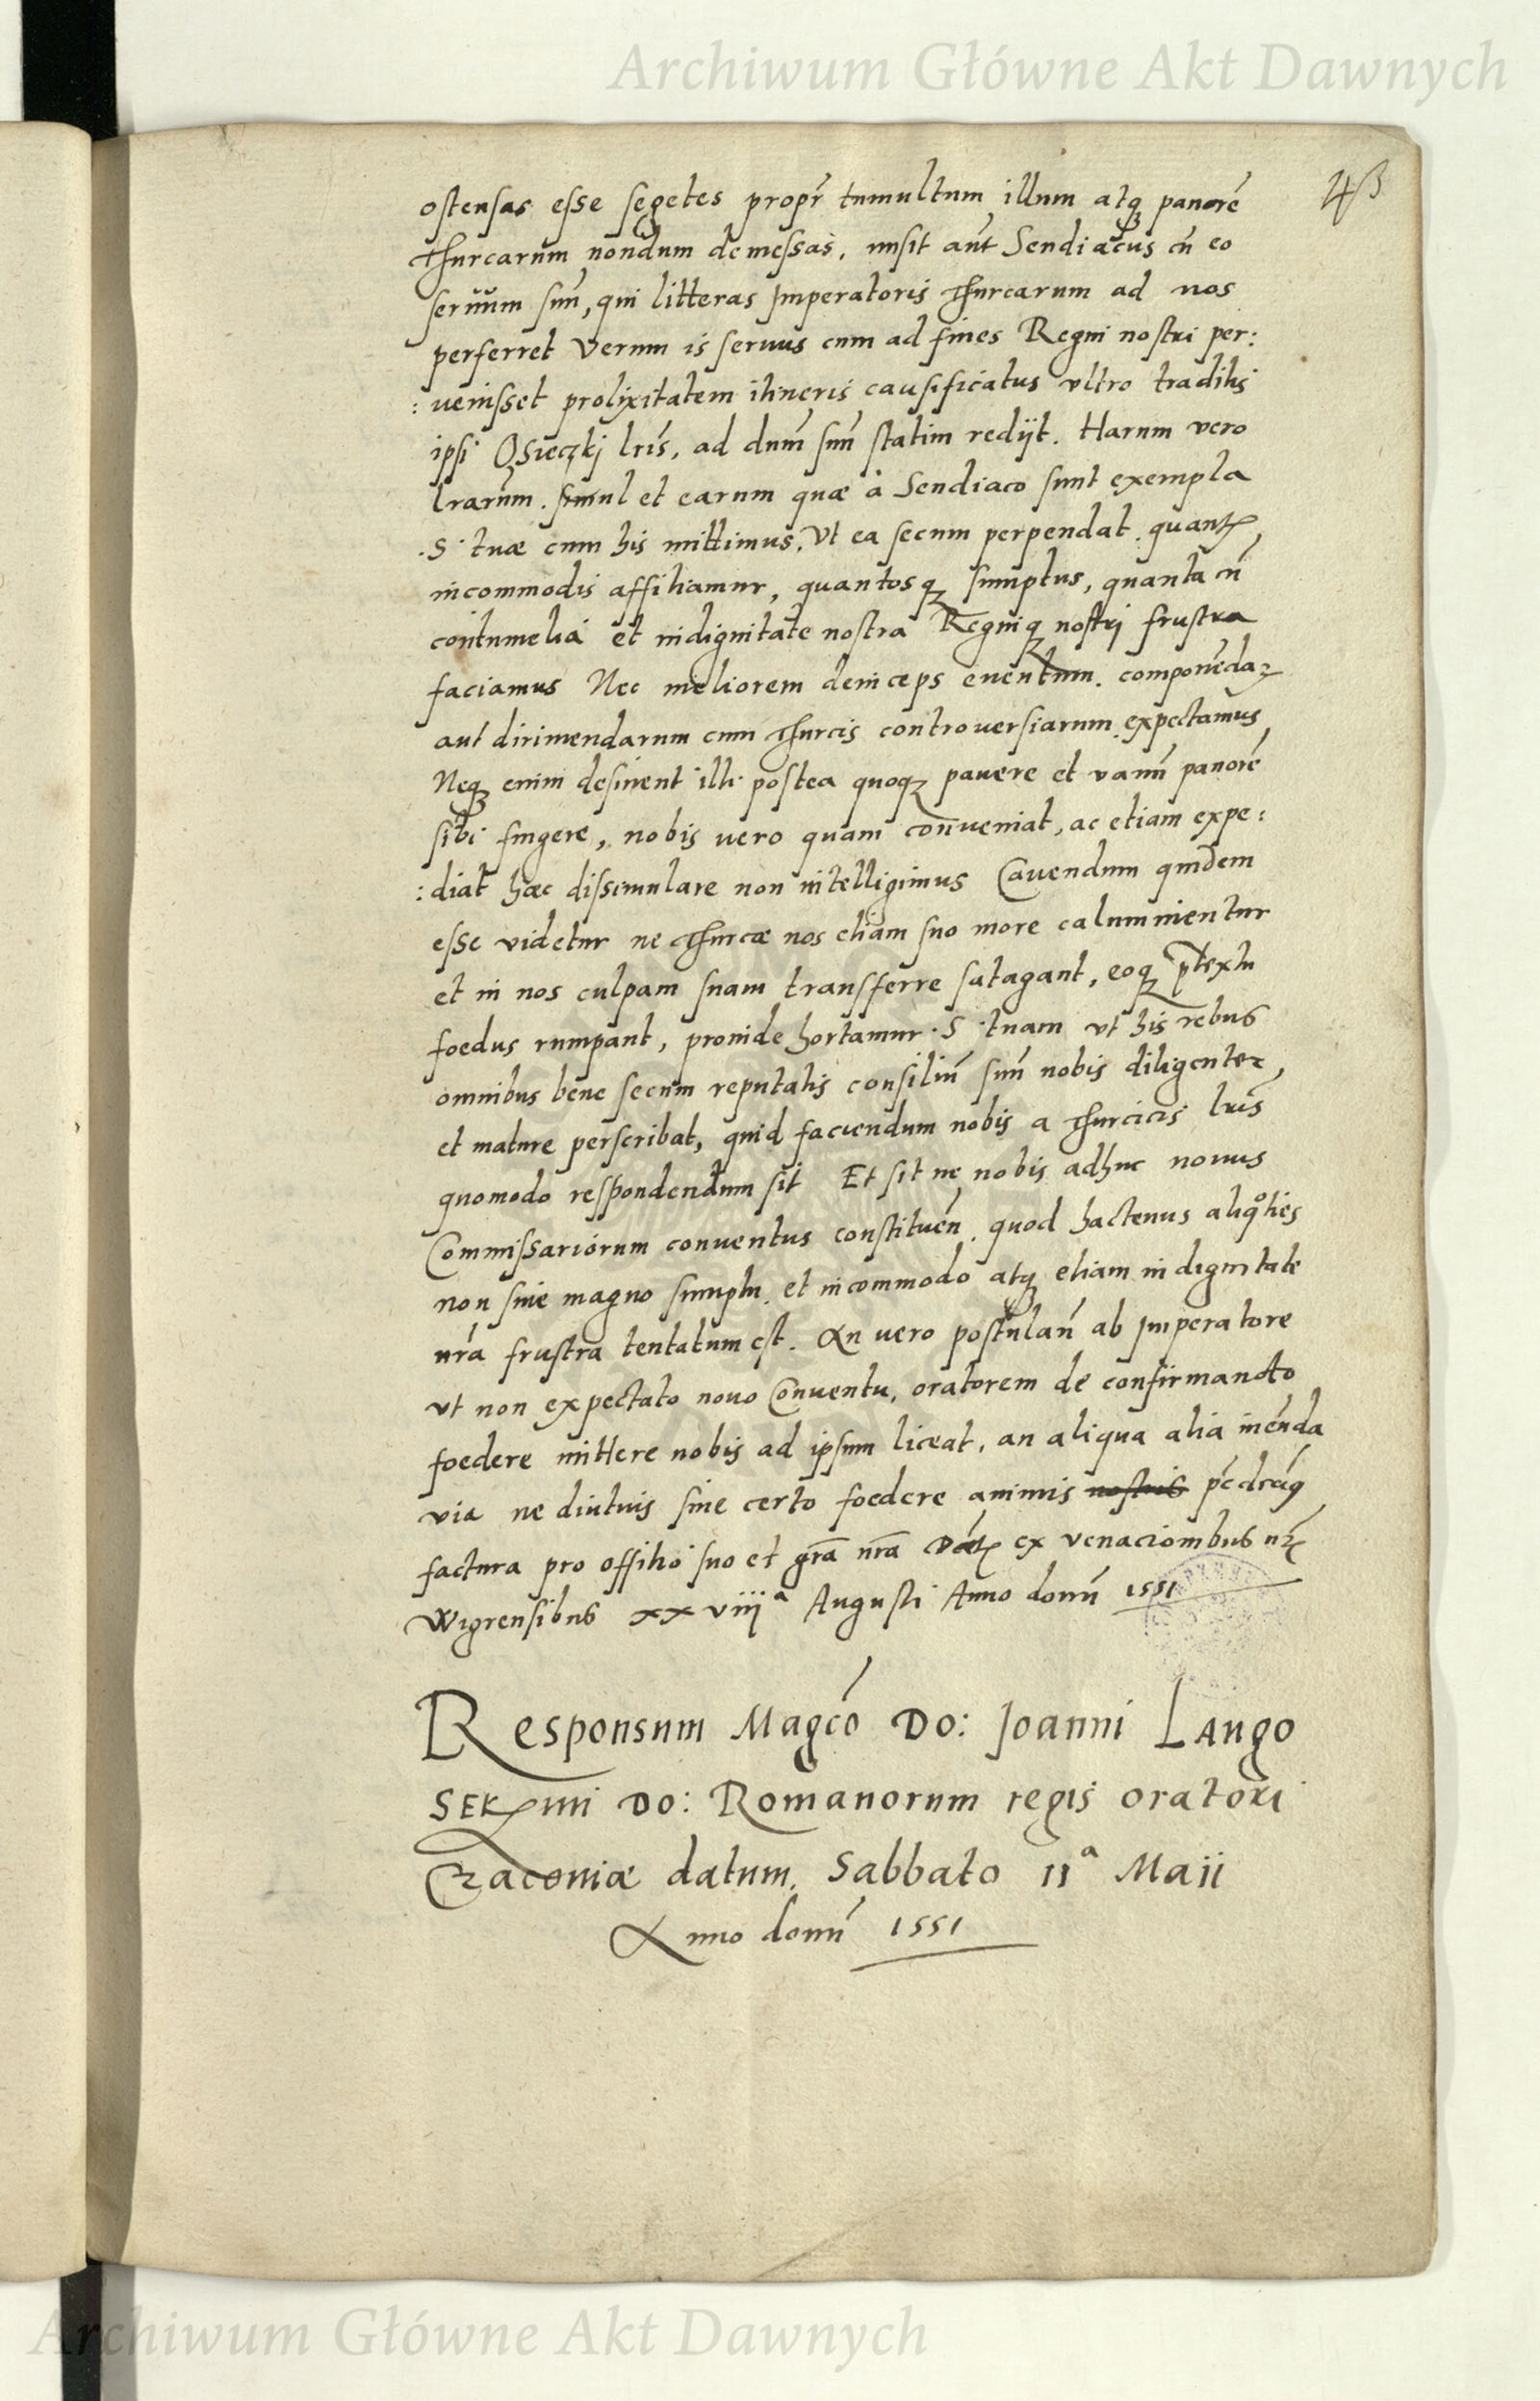 Archiwum Główne Akt Dawnych
43
ostensas esse segetes propr̃ tumultum illum atq; pauorẽ
Thurcarum nondum demessas, misit aũt Sendiacus cũ eo
seruum suũ, qui litteras Imperatoris Thurcarum ad nos
perferret Verum is seruus cum ad fines Regni nostri per:
:uenisset prolixitatem itineris causificatus vltro traditis
ipsi Osieczkj lr̃is, ad dnũm suũ statim redijt. Harum vero
lrarũm. simul et earum quæ à Sendiaco sunt exempla
.S. tuæ cum his mittimus. Vt ea secum perpendat. quantis
incommodis afficiamur, quantosq; sumptus, quanta cũ
contumelia et indignitate nostra Regniq; nostri frustra
faciamus Nec meliorem deinceps euentum. componẽdaꝝ
aut dirimendarum cum Thurcis controuersiarum expectamus
Neq; enim desinent illi postea quoq; pauere et vanũ pauorẽ
sibi fingere, nobis vero quam conueniat, ac etiam expe:
:diat hæc dissimulare non intelligimus Cauendum quidem
esse videtur ne Thurcæ nos etiam suo more calumnientur
et in nos culpam suam transferre satagant, eoq; p̃textu
foedus rumpant, proinde hortamur .S. tuam vt his rebus
omnibus bene secum reputatis consiliũ suũ nobis diligenter,
et mature perscribat, quid faciendum nobis a Thurcicis lr̃is
quomodo respondendum sit Et sit ne nobis adhuc nouus
Commissariorum conuentus constituẽn. quod hactenus aliqͦties
non sine magno sumptu et incommodo atq; etiam indignitate
nr̃a frustra tentatum est. An vero postulañ ab Imperatore
vt non expectato nouo Conuentu, oratorem de confirmando
foedere mittere nobis ad ipsum liceat, an aliqua alia ineũnda
via ne diutius sine certo foedere animis nostris
factura pro offitio suo et grã nrã ex venacionibus nr̃is
Wigrensibus xxviijᵃ Augusti Anno domĩ 1551
Responsum Magcõ Do: Joanni Lango
Serᵐⁱ Do: Romanorum regis oratori
Cracouiæ datum. Sabbato 11ᵃ Maii
Anno domĩ 1551
Archiwum Główne Akt Dawnych